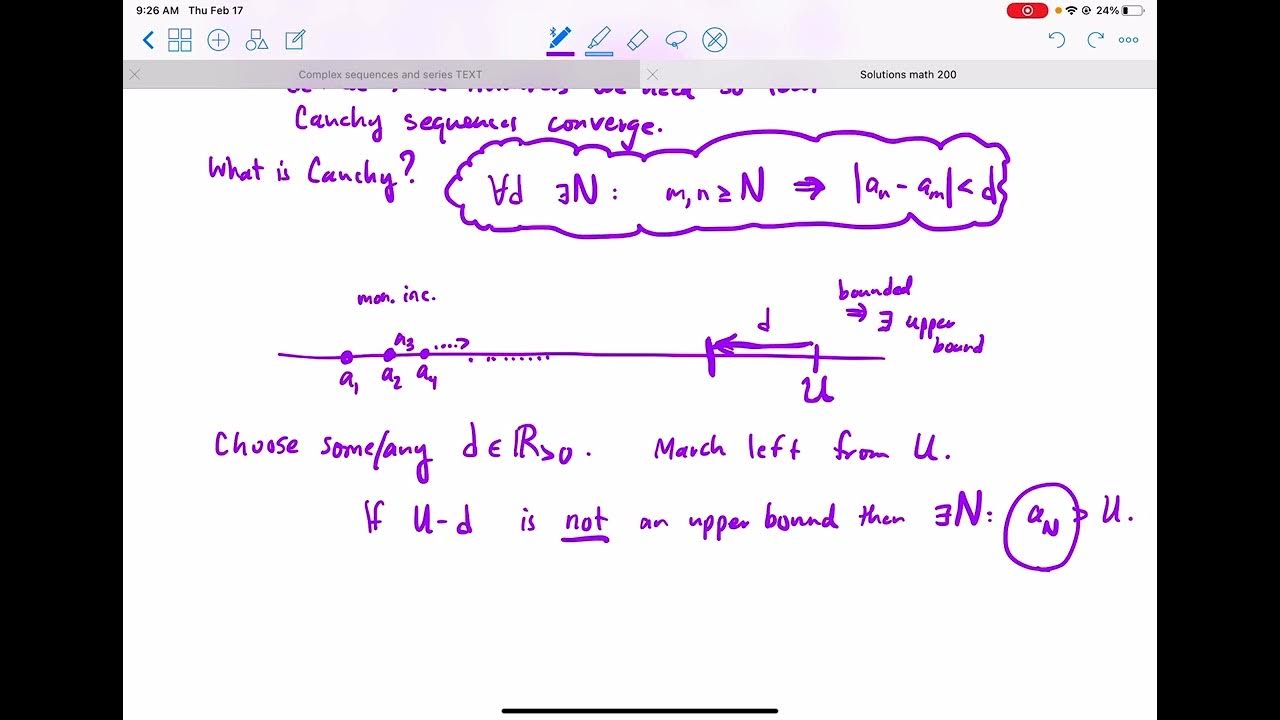 9:26 AM Thu Feb 17
24%
Complex sequences and series TEXT
Solutions math 200
we need so
Cauchy sequences converge.
What is Cauchy?
∀d ∃N: m,n ≥ N ⇒ |aₙ - aₘ| < d
mon. inc.
bounded
⇒ ∃ upper
bound
d
a₃ ....>
........
a₁ a₂ a₄
U
Choose some/any d ∈ ℝ>0. March left from U.
If U-d is not an upper bound then ∃N: a_N > U.